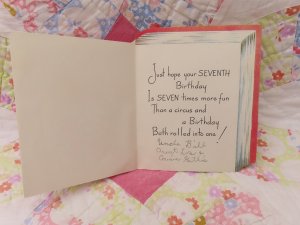 Just hope your SEVENTH
Birthday
Is SEVEN times more fun
Than a circus and
a Birthday
Both rolled into one!
Uncle Bill